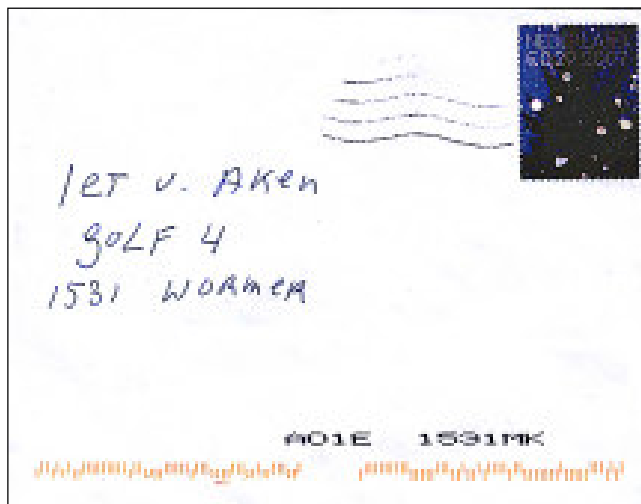 NEDERLAND
€0,29 2007
Iet v. Aken
golf 4
1531 Wormer
A01E 1531MK